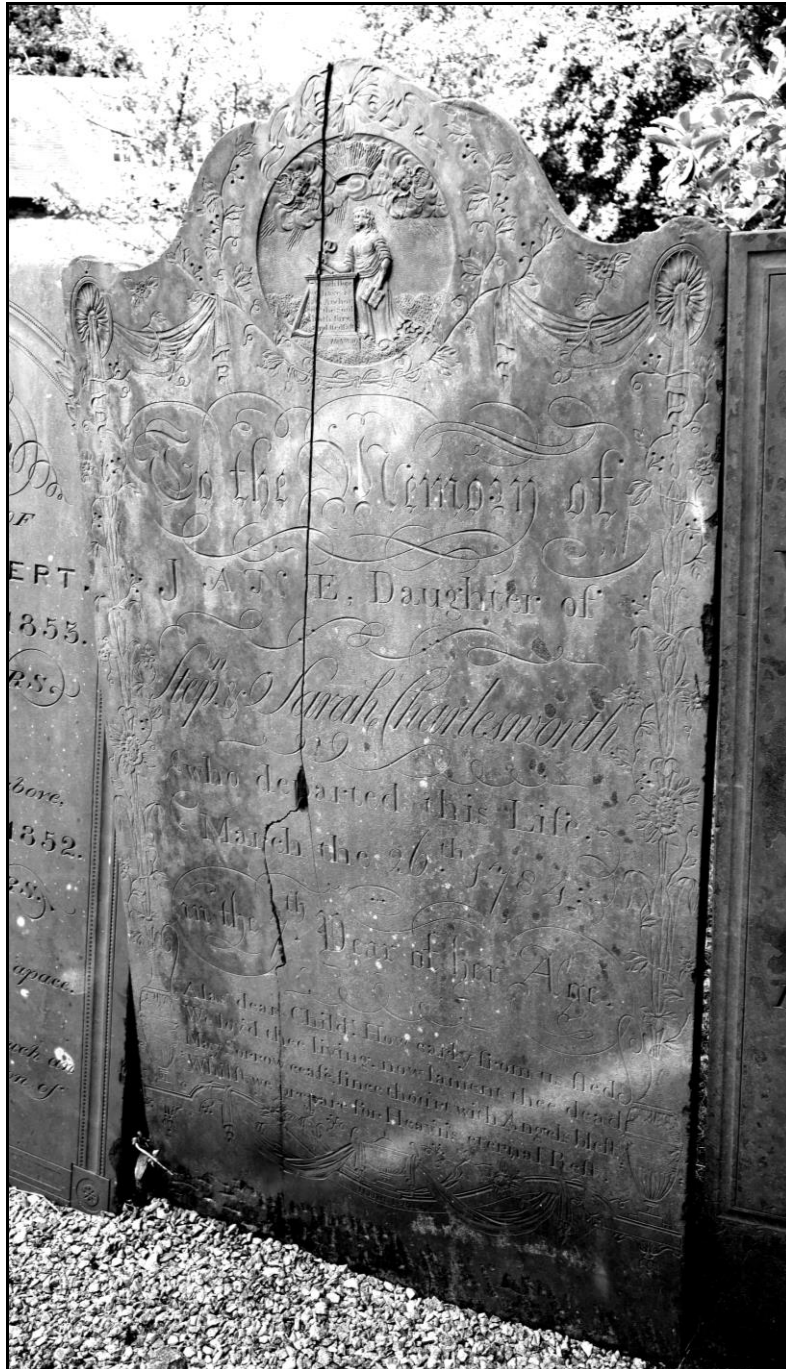 To the Memory of
JANE, Daughter of
Stepn. & Sarah Charlesworth
who departed this Life,
March the 26th. 1784:
in the 7th Year of her Age.
Alas dear Child! How early from us fled
We lov'd thee living, now lament thee dead
May Sorrow cease since thou'rt with Angels blest
Whilst we prepare for Heav'ns eternal Rest
OF
ERT,
1855.
RS.
bove,
1852.
RS.
apace,